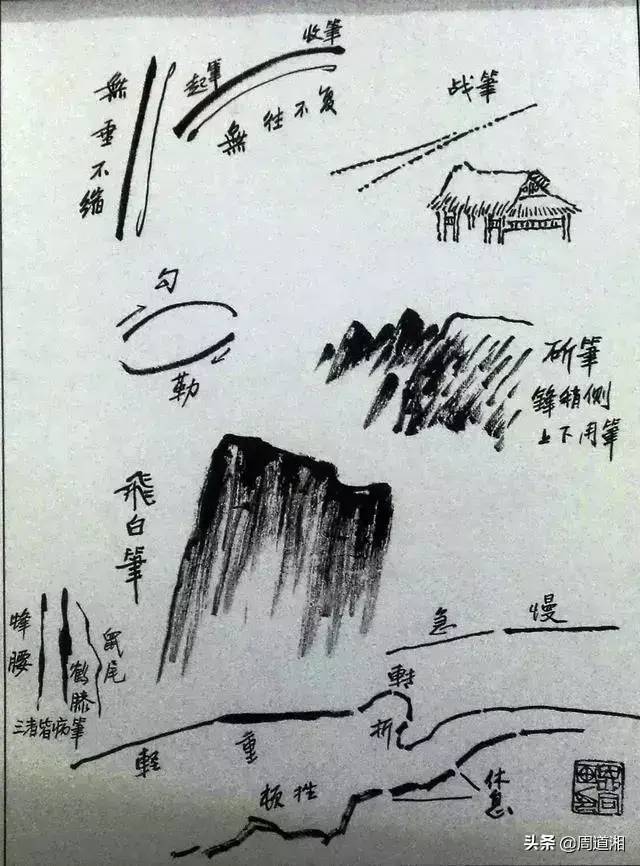 無垂不缩
起筆
收筆
無往不复
战筆
勾
勒
斫筆
鋒稍侧
上下用筆
飛白筆
蜂腰
鶴膝
鼠尾
三者皆病筆
急
慢
輕
重
転
折
顿挫
休息
头条 @周道湘